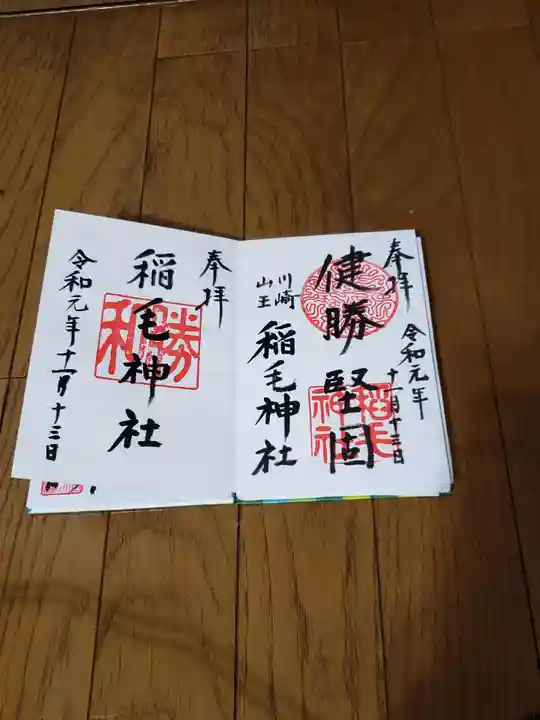 奉拝
健勝堅固
令和元年
十一月十三日
川崎
山王
稲毛神社
稲毛神社
奉拝
稲毛神社
勝利
令和元年十一月十三日